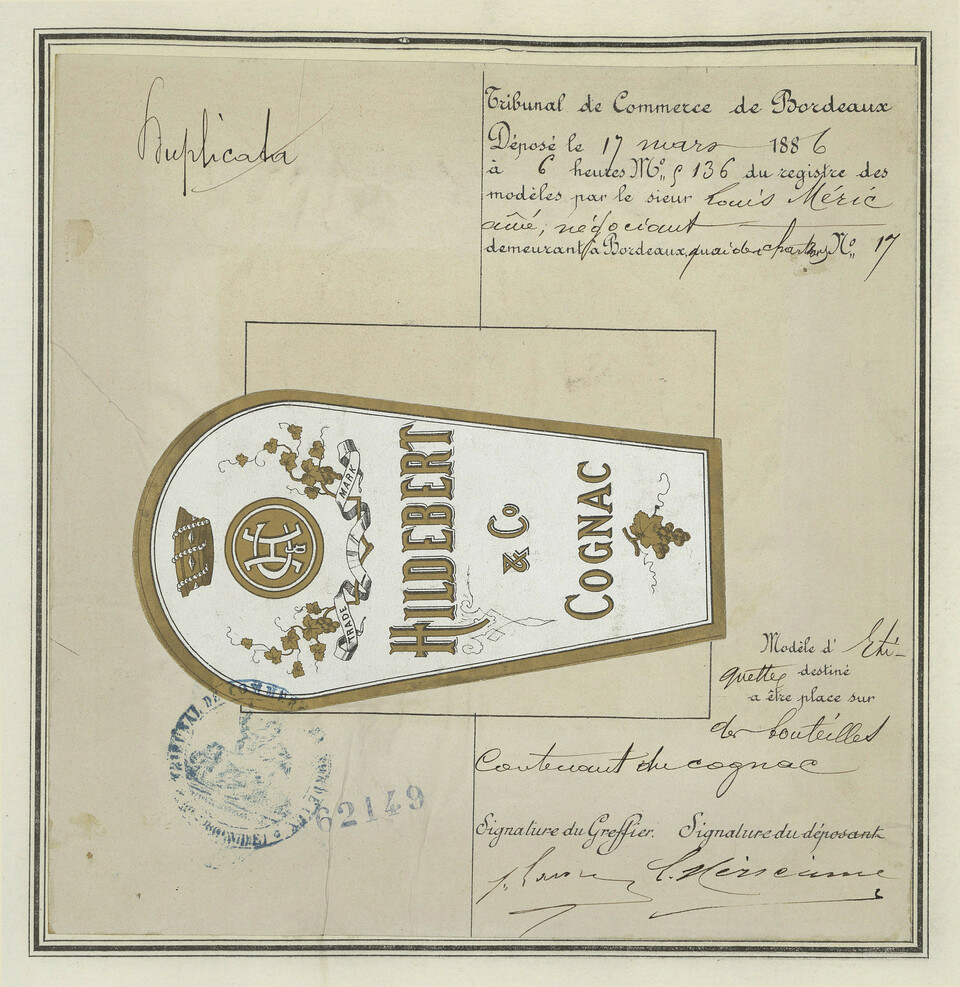 Duplicata
Tribunal de Commerce de Bordeaux
Déposé le 17 mars 1886
à 6 heures M° s 136 du registre des
modèles par le sieur Louis Méric
aîné, négociant
demeurant à Bordeaux, quai des Chartrons N° 17
MARK
TRADE
HILDEBERT
& Co
COGNAC
Modèle d' Eti-
quettes destiné
a être place sur
des bouteilles
Contenant du cognac
TRIBUNAL DE COMMERCE
62149
Signature du Greffier. Signature du déposant
L. Méric aîné